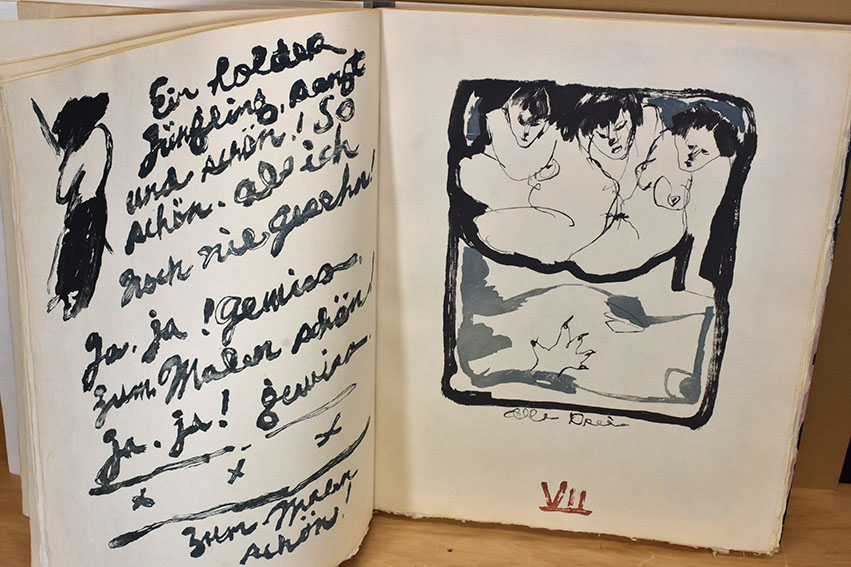 Ein holder
Jüngling, sanft
und schön! So
schön. als ich
noch nie gesehn!
Ja, ja! gewiss,
zum Malen schön!
Ja, ja! gewiss.
x x x
zum Malen
schön!
Alle Drei
VII